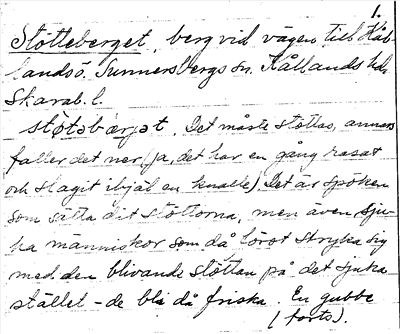 1.
Stötteberget, berg vid vägen till Håb-
landsö, Sunnersbergs sn. Kållands hd.
Skarab. l.
stötsbärjet. Det måste stöttas, annars
faller det ner (ja, det har en gång rasat
och slagit ihjäl en knalle). Det är spöken
som sätta dit stöttorna, men även sju-
ka människor som då först stryka sig
med den blivande stöttan på det sjuka
stället - de bli då friska. En gubbe
(forts).